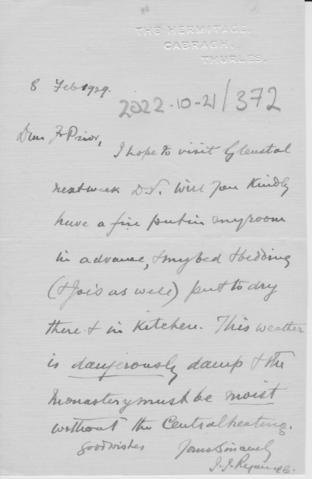 THE HERMITAGE,
CABRAGH,
THURLES.
8 Feb 1929.
2022-10-21/372
Dear Fr Prior,
I hope to visit Glenstal
next week D.V. Will you kindly
have a fire put in my room
in advance, & my bed & bedding
(& Joe's as well) put to dry
there & in Kitchen. This weather
is dangerously damp & the
Monastery must be moist
without the Central heating.
Good wishes Yours Sincerely
J.J. Ryan